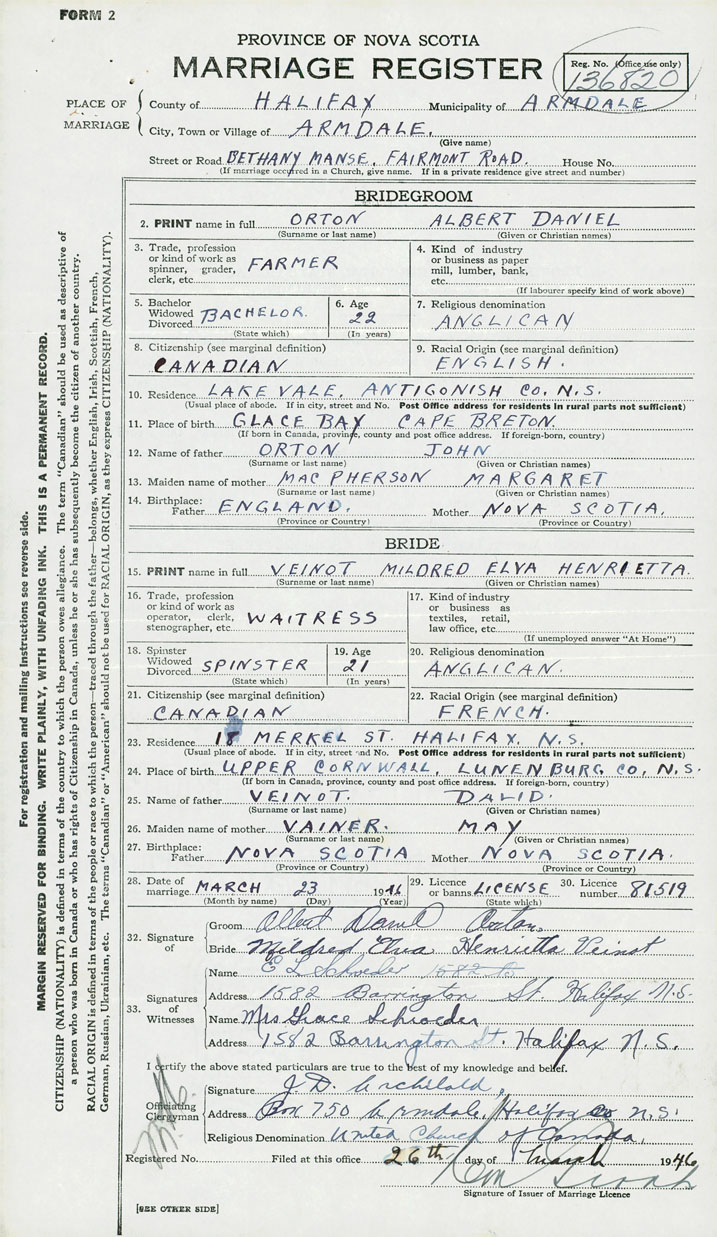 FORM 2
PROVINCE OF NOVA SCOTIA
MARRIAGE REGISTER
Reg. No. (Office use only)
136820
PLACE OF MARRIAGE
County of HALIFAX Municipality of ARMDALE
City, Town or Village of ARMDALE.
(Give name)
Street or Road BETHANY MANSE, FAIRMONT ROAD. House No.
(If marriage occurred in a Church, give name. If in a private residence give street and number)
BRIDEGROOM
2. PRINT name in full ORTON ALBERT DANIEL
(Surname or last name) (Given or Christian names)
3. Trade, profession or kind of work as spinner, grader, clerk, etc. FARMER
4. Kind of industry or business as paper mill, lumber, bank, etc.
(If labourer specify kind of work above)
5. Bachelor Widowed Divorced BACHELOR.
(State which)
6. Age 22
(In years)
7. Religious denomination
ANGLICAN
8. Citizenship (see marginal definition)
CANADIAN
9. Racial Origin (see marginal definition)
ENGLISH.
10. Residence LAKE VALE, ANTIGONISH CO. N.S.
(Usual place of abode. If in city, street and No. Post Office address for residents in rural parts not sufficient)
11. Place of birth GLACE BAY CAPE BRETON.
(If born in Canada, province, county and post office address. If foreign-born, country)
12. Name of father ORTON JOHN
(Surname or last name) (Given or Christian names)
13. Maiden name of mother MACPHERSON MARGARET
(Surname or last name) (Given or Christian names)
14. Birthplace: Father ENGLAND. Mother NOVA SCOTIA.
(Province or Country) (Province or Country)
BRIDE
15. PRINT name in full VEINOT MILDRED ELVA HENRIETTA.
(Surname or last name) (Given or Christian names)
16. Trade, profession or kind of work as operator, clerk, stenographer, etc. WAITRESS
17. Kind of industry or business as textiles, retail, law office, etc.
(If unemployed answer "At Home")
18. Spinster Widowed Divorced SPINSTER
(State which)
19. Age 21
(In years)
20. Religious denomination
ANGLICAN.
21. Citizenship (see marginal definition)
CANADIAN
22. Racial Origin (see marginal definition)
FRENCH.
23. Residence 18 MERKEL ST. HALIFAX, N.S.
(Usual place of abode. If in city, street and No. Post Office address for residents in rural parts not sufficient)
24. Place of birth UPPER CORNWALL, LUNENBURG CO, N.S.
(If born in Canada, province, county and post office address. If foreign-born, country)
25. Name of father VEINOT. DAVID.
(Surname or last name) (Given or Christian names)
26. Maiden name of mother VAINER. MAY
(Surname or last name) (Given or Christian names)
27. Birthplace: Father NOVA SCOTIA Mother NOVA SCOTIA.
(Province or Country) (Province or Country)
28. Date of marriage MARCH 23 1946
(Month by name) (Day) (Year)
29. Licence or banns LICENSE
(State which)
30. Licence number 81519
32. Signature of
Groom Albert Daniel Orton
Bride Mildred Elva Henrietta Veinot
33. Signatures of Witnesses
Name E L Schroeder 1582 B
Address 1582 Barrington St. Halifax N.S.
Name Mrs Grace Schroeder
Address 1582 Barrington St. Halifax N.S.
I certify the above stated particulars are true to the best of my knowledge and belief.
Officiating Clergyman
Signature J. D. Archibald,
Address Box 750 Armdale, Halifax Co N.S.
Religious Denomination United Church of Canada.
Registered No. Filed at this office 26th day of March 1946
Signature of Issuer of Marriage Licence
[SEE OTHER SIDE]
For registration and mailing instructions see reverse side.
MARGIN RESERVED FOR BINDING. WRITE PLAINLY, WITH UNFADING INK. THIS IS A PERMANENT RECORD.
CITIZENSHIP (NATIONALITY) is defined in terms of the country to which the person owes allegiance. The term "Canadian" should be used as descriptive of
a person who was born in Canada or who has rights of Citizenship in Canada, unless he or she has subsequently become the citizen of another country.
RACIAL ORIGIN is defined in terms of the people or race to which the person—traced through the father—belongs, whether English, Irish, Scottish, French,
German, Russian, Ukrainian, etc. The terms "Canadian" or "American" should not be used for RACIAL ORIGIN, as they express CITIZENSHIP (NATIONALITY).